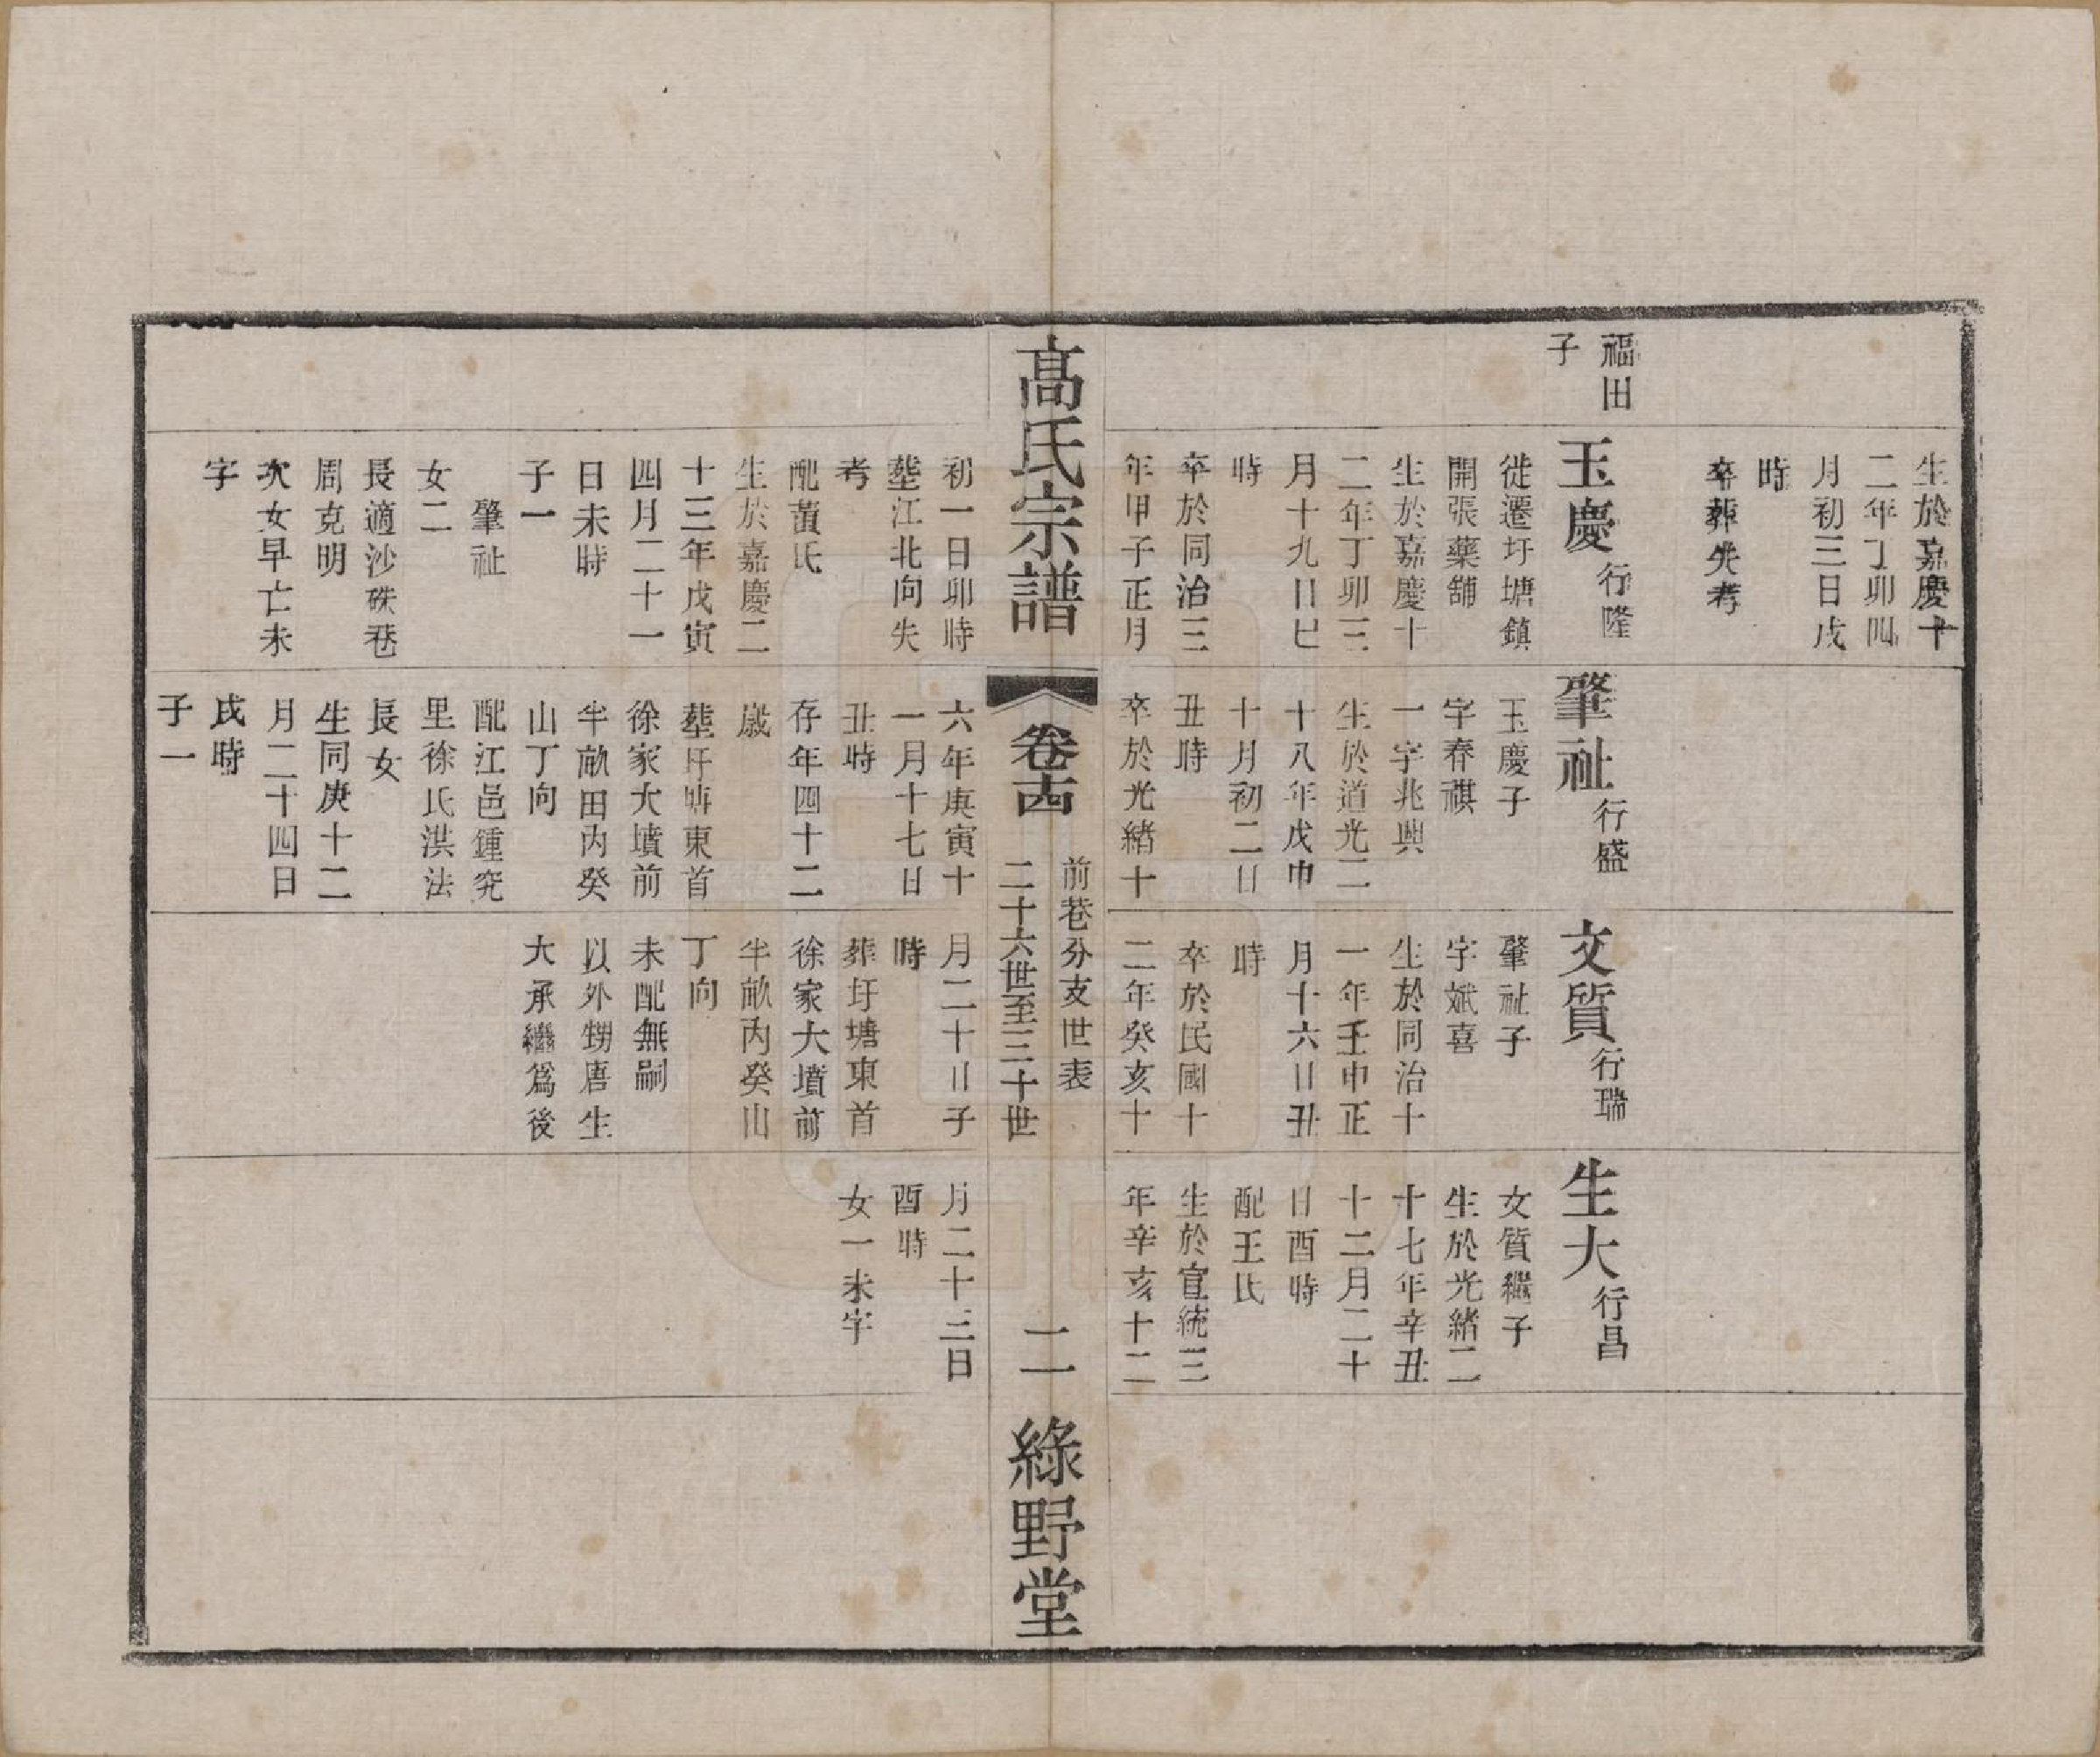 福田
子
生於嘉慶十
二年丁卯四
月初三日戌
時
卒葬失考
玉慶行隆
徙遷圩塘鎮
開張藥舖
生於嘉慶十
二年丁卯三
月十九日巳
時
卒於同治三
年甲子正月
肇祉行盛
玉慶子
字春祺
一字兆興
生於道光二
十八年戊申
十月初二日
丑時
卒於光緒十
文質行瑞
肇祉子
字斌喜
生於同治十
一年壬申正
月十六日丑
時
卒於民國十
二年癸亥十
生大行昌
文質繼子
生於光緒二
十七年辛丑
十二月二十
日酉時
配王氏
生於宣統三
年辛亥十二
高氏宗譜
卷十四
前巷分支世表
二十六世至三十世
二
綠野堂
初一日卯時
塟江北向失
考
配黃氏
生於嘉慶二
十三年戊寅
四月二十一
日未時
子一
肇祉
女二
長適沙硃巷
周克明
次女早亡未
字
六年庚寅十
一月十七日
丑時
存年四十二
歲
塟圩塘東首
徐家大墳前
半畝田內癸
山丁向
配江邑鍾究
里徐氏洪法
長女
生同庚十二
月二十四日
戌時
子一
月二十日子
時
葬圩塘東首
徐家大墳前
半畝內癸山
丁向
未配無嗣
以外甥唐生
大承繼爲後
月二十三日
酉時
女一未字